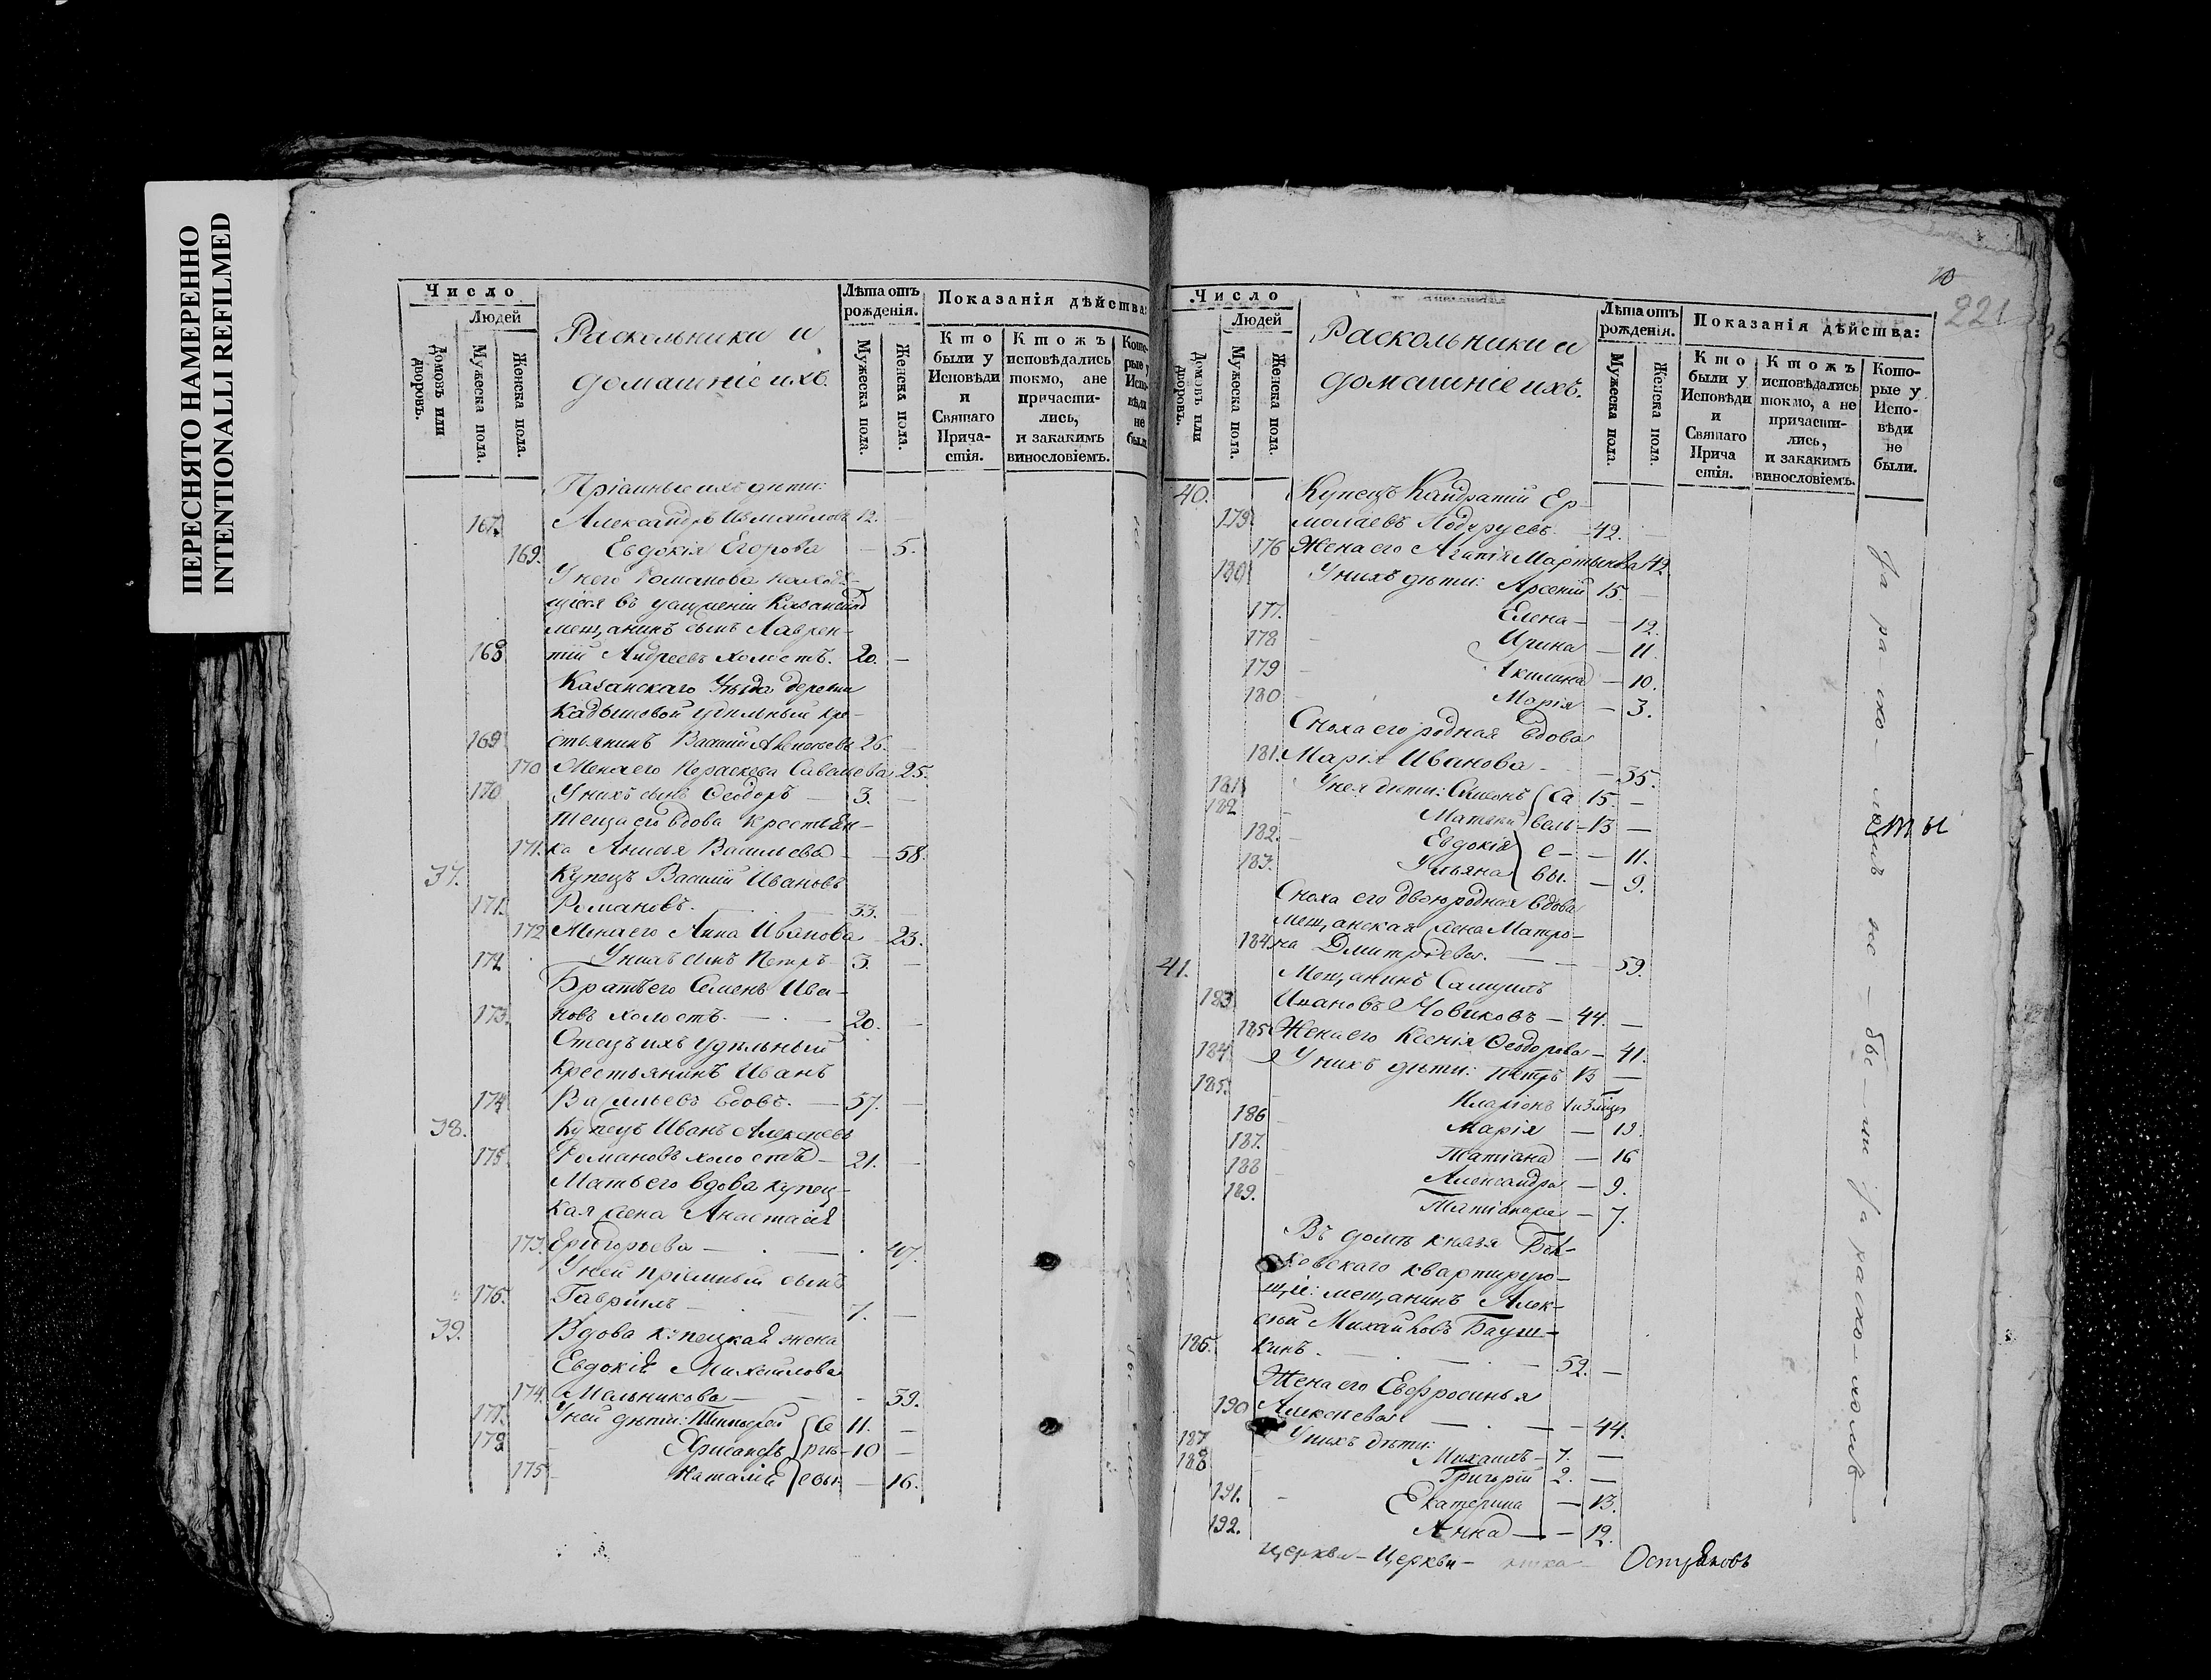 ПЕРЕСНЯТО НАМЕРЕННО
INTENTIONALLI REFILMED
Число
Людей
Домовъ или дворовъ.
Мужеска пола.
Женска пола.
Раскольники и
домашніе ихъ.
Лѣта отъ рожденія.
Мужеска пола.
Женска пола.
Показанія дѣйства:
Кто были у Исповѣди и Святаго Причастія.
Ктожъ исповѣдались токмо, а не причастились, и закакимъ винословіемъ.
Которые у Исповѣди не были.
Пріемные ихъ дѣти:
167. Александръ Измаиловъ 12.
169. Евдокія Егорова — 5.
У него Романова находя-
щіеся въ услуженіи Казанскій
мещанинъ сынъ Лаврен-
168 тій Андреевъ холостъ. 20. —
Казанскаго Уѣзда деревни
Кадышовой удѣльный кре-
169 стьянинъ Василій 26. —
170 Жена его Параскева Савельева 25.
170 У нихъ сынъ Ѳеодоръ — 3. —
Теща его вдова крестьян-
171. ка Анисья Васильева — — 58.
37. Купецъ Василій Ивановъ
171. Романовъ. — 33. —
172 Жена его Анна Иванова — 23.
172 У нихъ сынъ Петръ 3. —
Братъ его Семенъ Ива-
173. новъ холостъ. — 20. —
Отецъ ихъ удѣльный
крестьянинъ Иванъ
174 Васильевъ вдовъ. — 57. —
38. Купецъ Иванъ Алексѣевъ
175 Романовъ холостъ — 21. —
Мать его вдова купец-
кая жена Анастасія
173. Григорьева — 47.
У ней пріемный сынъ
176. Гавріилъ — 7. —
39. Вдова купецкая жена
Евдокія Михайлова
174. Мельникова — — 59.
177. У ней дѣти: Тимофей 11. —
178 Хрисанфъ — 10 —
175 Наталія — 16.
10
221
Число
Людей
Домовъ или дворовъ.
Мужеска пола.
Женска пола.
Раскольники и
домашніе ихъ.
Лѣта отъ рожденія.
Мужеска пола.
Женска пола.
Показанія дѣйства:
Кто были у Исповѣди и Святаго Причастія.
Ктожъ исповѣдались токмо, а не причастились, и закакимъ винословіемъ.
Которые у Исповѣди не были.
40. Купецъ Кандратій Ер-
179. молаевъ 42. —
176 Жена его Агапія Мартынова 42
180 У нихъ дѣти: Арсеній 15. —
177. Елена — — 12.
178 Ирина — 11.
179 Акилина — 10.
180 Марія — 3.
Сноха его родная вдова
181. Марія Иванова — — 35.
181 У нея дѣти: Симеонъ 15. —
182 Матвей — 13 —
182. Евдокія — 11.
183. Ульяна — 9.
Сноха его двоюродная вдова
мещанская жена Матро-
184. на Дмитріева. — — 59.
41. Мещанинъ Самуилъ
183 Ивановъ Новиковъ — 44. —
185 Жена его Ксенія Ѳеодорова — 41.
184 У нихъ дѣти: Петръ 13 —
185. Иларіонъ
186 Марія — 19.
187. Татіана — 16
188 Александра — 9.
189. Татіана — 7.
Въ домѣ князя Бек-
ковскаго квартирую-
щіе: мещанинъ Алек-
сѣй Михайловъ Бауш-
186. кинъ. — 52. —
Жена его Евфросинья
190 Алексѣева — — 44.
187 У нихъ дѣти: Михаилъ — 7. —
188 Григорій 2. —
191. Екатерина — 13.
192. Анна — — 12.
За ра-ско-ломъ не-бы-ли За раско-ломъ
церкви - Церкви - Остряковъ